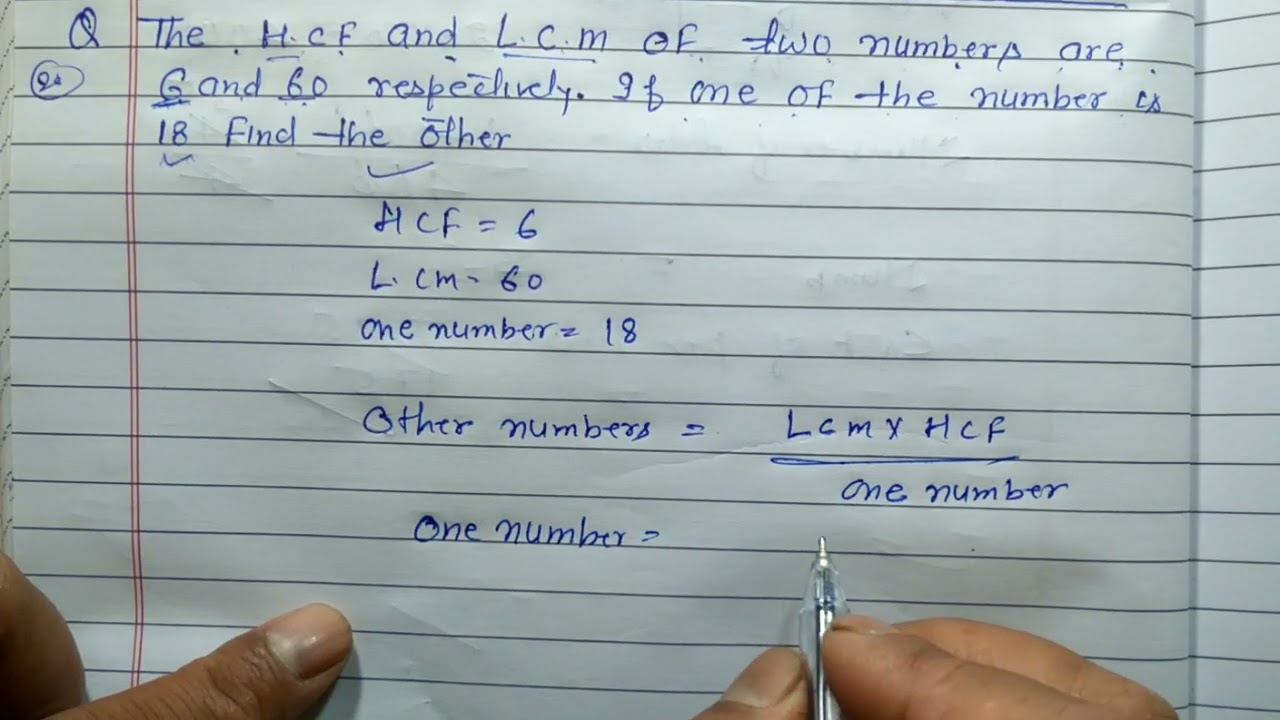 Q The H.C.F and L.C.M of two numbers are
Q2 6 and 60 respectively. If one of the number is
18 Find the other
HCF = 6
L.CM = 60
One number = 18
Other numbers = LCM X HCF
One number
One number =